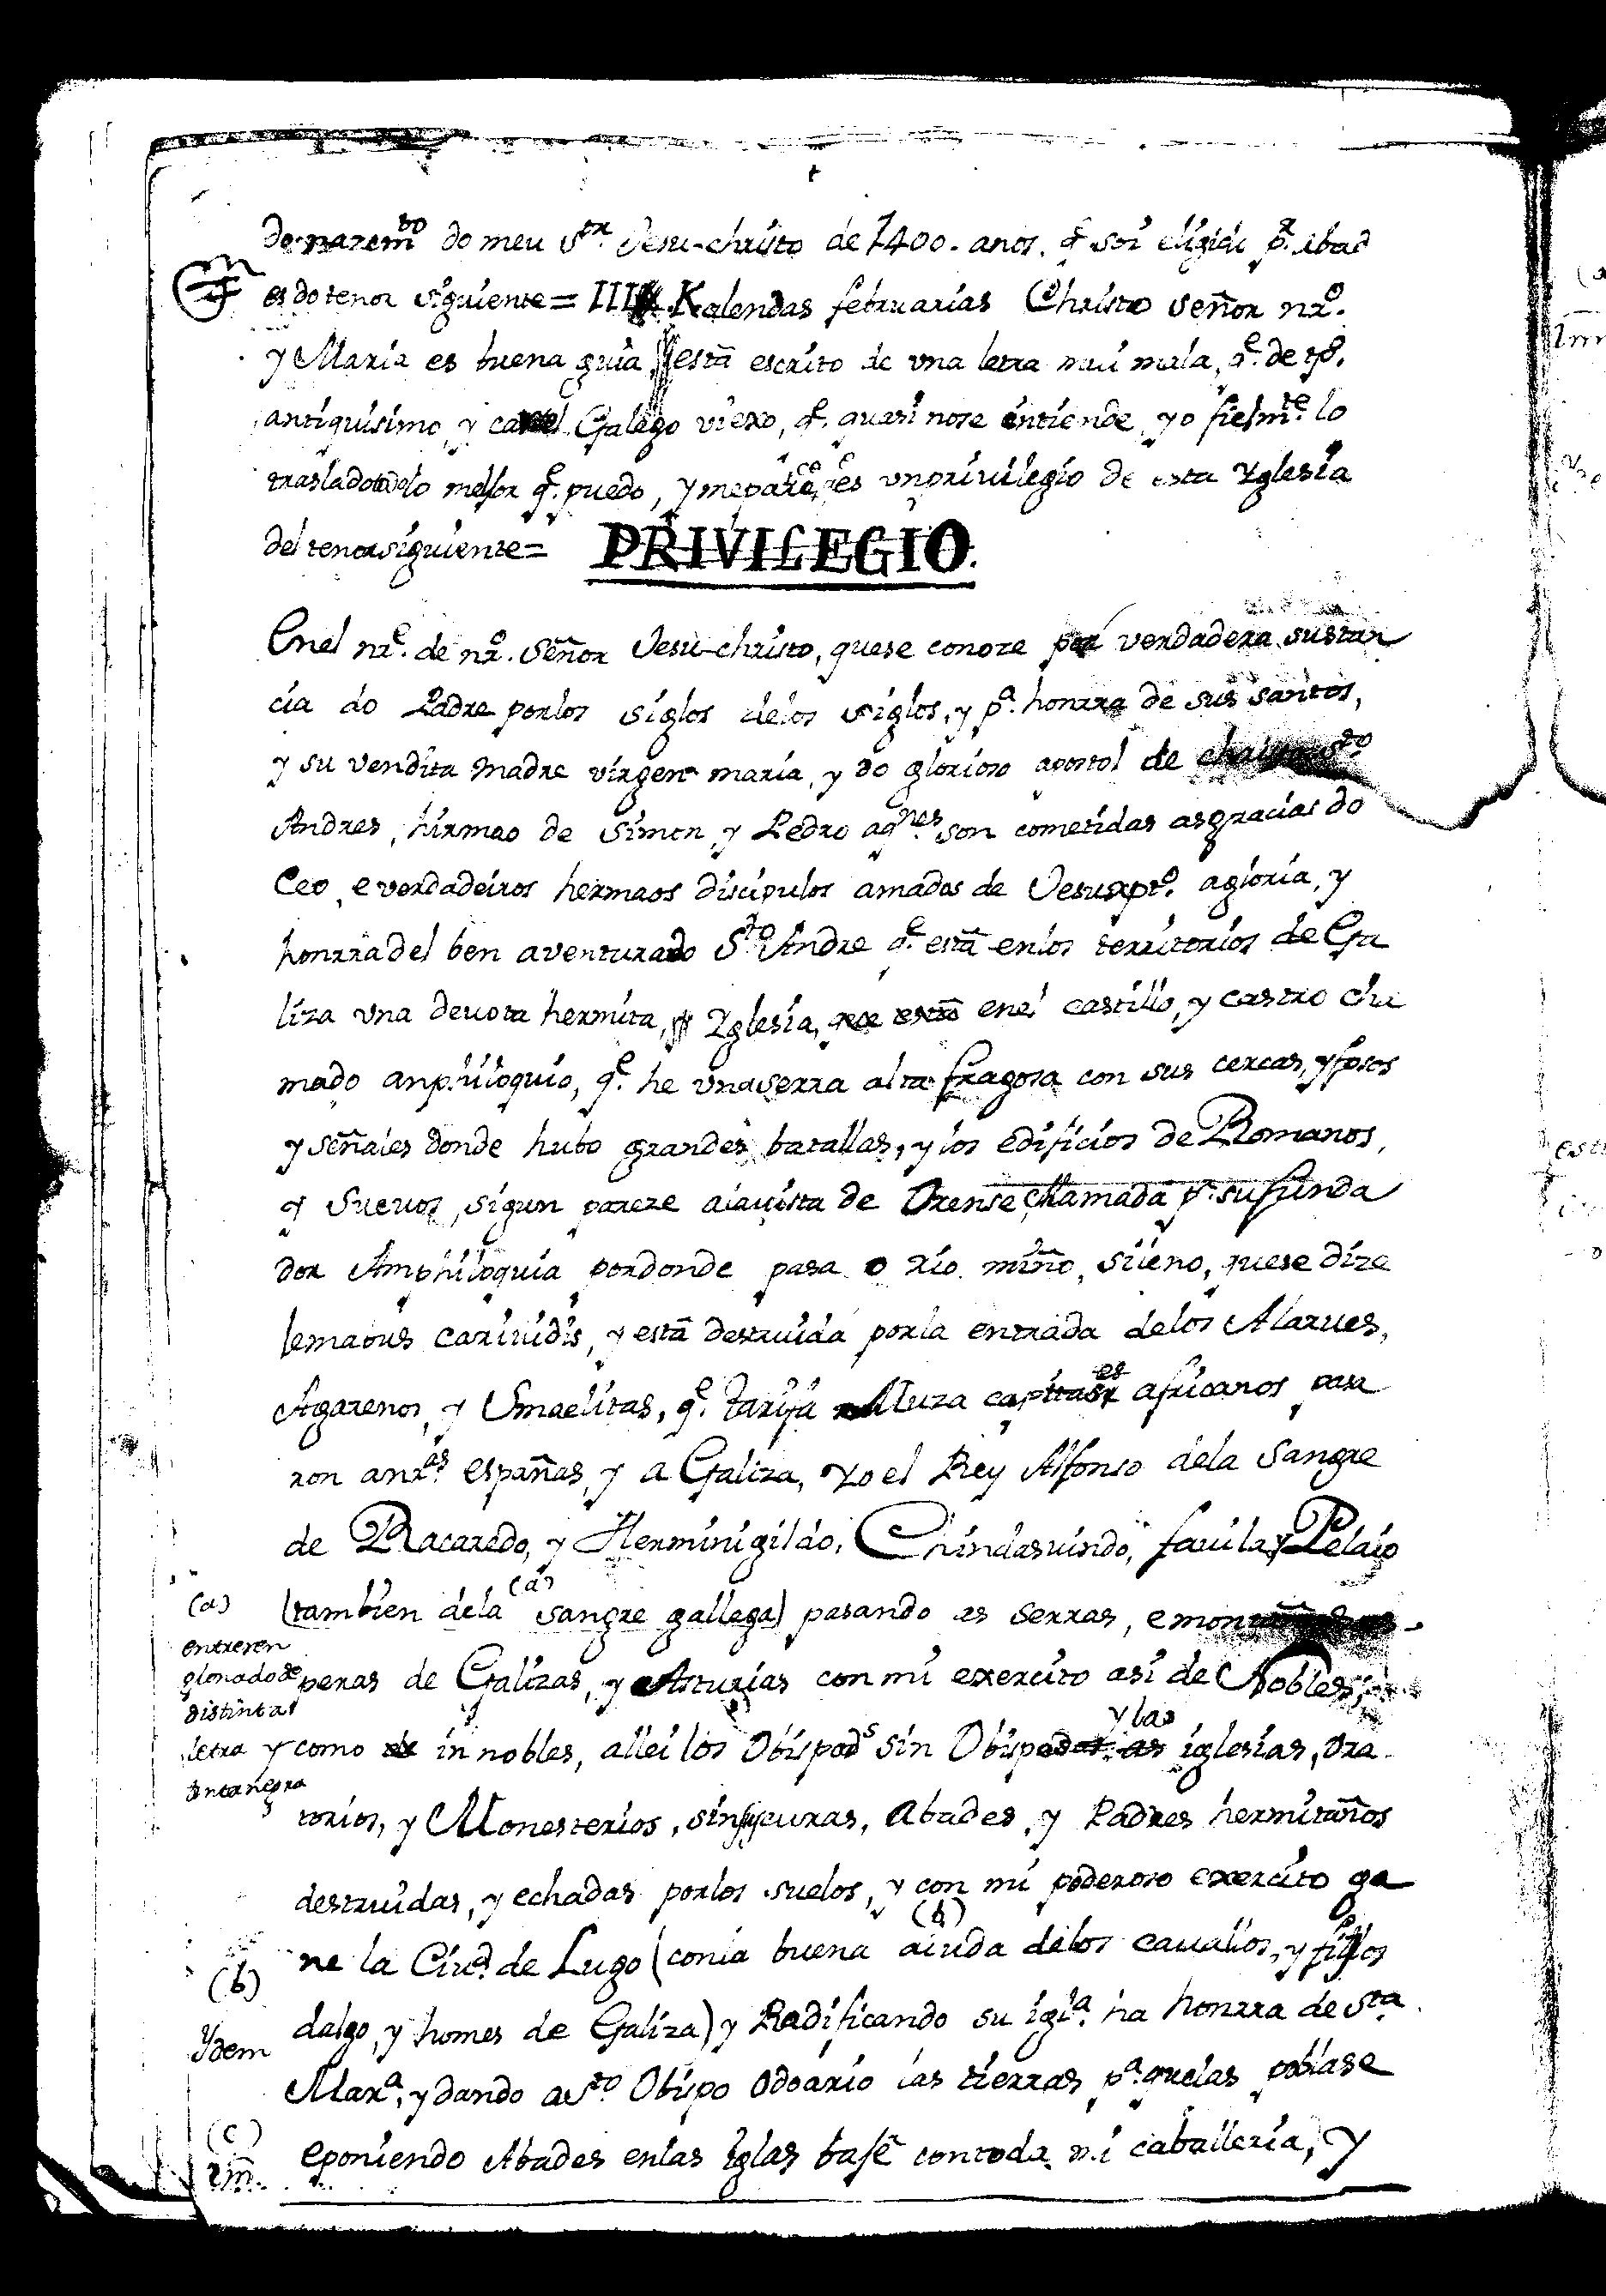 do narem.to do meu S.or Jesu-christo de 1400. anos. q.e foi eligido p.a abad
es do tenor siguiente = III Kalendas februarias Christo señor nr.o
y Maria es buena guia, está escrito de una letra mui mala, q.e de tpo.
antiquisimo, y Galego viexo, q.e quasi nose entiende, yo fielm.te lo
traslado do lo mejor q.e puedo, y mepareçe, q.e es un privilegio de esta Yglesia
del tenor siguiente =
PRIVILEGIO.
Enel nr.e de nr.o Señor Jesu-christo, quese conoze por verdadera sustan
cia do Padre porlos siglos delos siglos, y p.a honrra de sus santos,
y su vendita madre virgen maria, y do glorioso apostol de
Andres, hirmao de Simon y Pedro aq.nes son cometidas asgracias do
Ceo, e verdadeiros hermaos discipulos amados de Jesuxpto. agloria, y
honrra del ben aventurado S.to Andre q.e está enlos territorios de Ga
liza una devota hermita, Yglesia, que está enel castillo, y castro cha
mado anphiloquio, q.e he una serra alta fragosa con sus cercas, y fosos
y señales donde hubo grandes batallas, y los edificios de Romanos,
y Suevos, sigun pareze aiavista de Orense, chamada p.r su funda
dor Amphiloquia pordonde pasa o rio miño, sileno, quese dize
lematus cariuidis, y está destruida porla entrada delos Alarves,
Agarenos, y Ismaelitas, q.e Tarifa Muza capitanes africanos pasa
ron anr.as españas, y a Galiza, Yo el Rey Alfonso dela Sangre
de Racaredo, y Herminigildo, Chindasuindo, favila, y Pelaio
(tambien dela (a) sangre gallega) pasando as serras, e montañas
(a) entreren
glonado de
distinta
letra y
tinta negra
penas de Galizas, y Asturias con mi exercito asi de Nobles,
como in nobles, allei los Obispod.s sin Obispo y las iglesias, Ora
torios, y Monesterios, sin curas, Abades, y Padres hermitaños
destruidas, y echadas porlos suelos, y con mi poderoso exercito ga
ne la Ciud.d de Lugo (conla buena (b) aiuda delos cavallos, y fijos
(b)
Ydem
dalgo, y homes de Galiza) y Radificando su igl.a ha honrra de S.ta
Mar.a, y dando a S.to Obispo Odoario las tierras p.a quelas poblase
eponiendo Abades enlas iglas baje contoda mi caballeria, y
(c)
im.